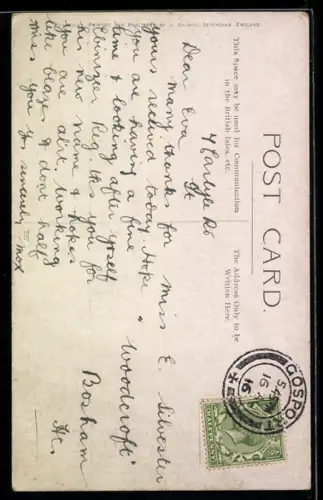 PRINTED AND PUBLISHED BY J. SALMON, SEVENOAKS, ENGLAND.
POST CARD.
This Space may be used for Communication
in the British Isles, etc.
The Address Only to be
Written Here.
4 Carlyle Rd
Dear Eva
Many thanks for
yours received today. Hope
you are having a fine
time & looking after yself
Ebinizer Reg. thks you for
his new name & hopes
you are alit. Working
like blazes & dont half
miss you Yrs sincerely
Miss E. Silvester
"Woodcroft"
Bosham
GOSPORT
16